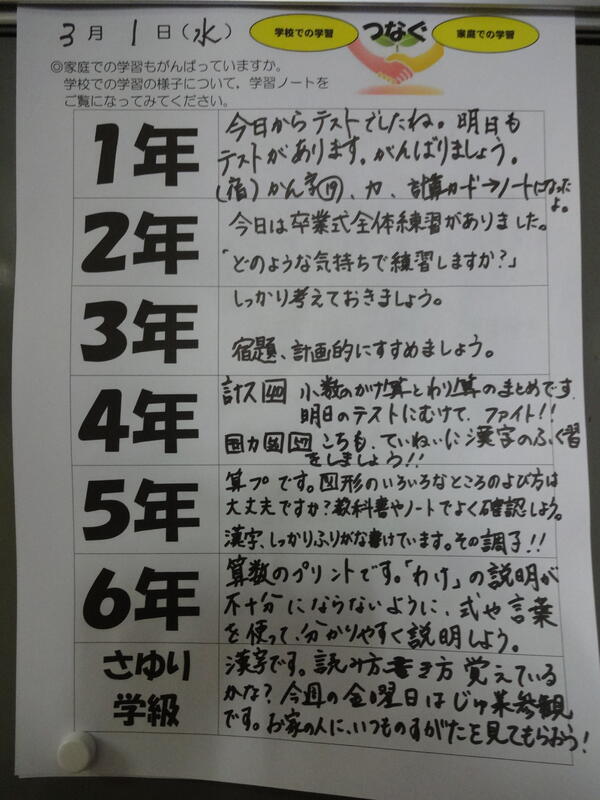 3月1日(水)
学校での学習 つなぐ 家庭での学習
◎家庭での学習もがんばっていますか。
学校での学習の様子について,学習ノートを
ご覧になってみてください。
1年
今日からテストでしたね。明日も
テストがあります。がんばりましょう。
(宿)かん字⑲、カ、計算カード→ノートになった
よ。
2年
今日は卒業式全体練習がありました。
「どのような気持ちで練習しますか?」
3年
しっかり考えておきましょう。
宿題、計画的にすすめましょう。
4年
計ス40 小数のかけ算とわり算のまとめです。
明日のテストにむけて、ファイト!!
カ 56 57 こちも、ていねいに漢字のふく習
をしましょう!!
5年
算プです。図形のいろいろなところのよび方は
大丈夫ですか?教科書やノートでよく確認しよう。
漢字、しっかりふりがな書けています。その調子!!
6年
算数のプリントです。「わけ」の説明が
不十分にならないように、式や言葉
を使って、分かりやすく説明しよう。
さゆり
学級
漢字です。読み方書き方覚えている
かな?今週の金曜日はじゅ業参観
です。お家の人に、いつものすがたを見てもらおう!